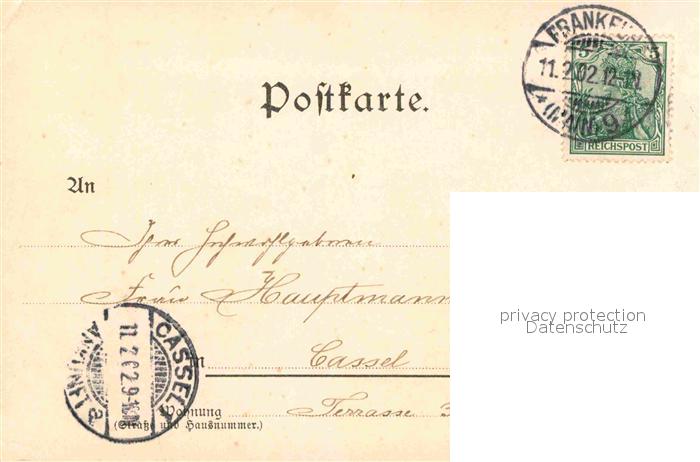 FRANKFURT
11.2.02.12-1N.
* (MAIN) 9
5 5
REICHSPOST
Postkarte.
An
Ihro Hochwohlgeboren
Frau Hauptmann
in Cassel
Terrasse
Wohnung
(Straße und Hausnummer.)
CASSEL 1
11.2.02.9-10N.
ANKUNFT a
privacy protection
Datenschutz